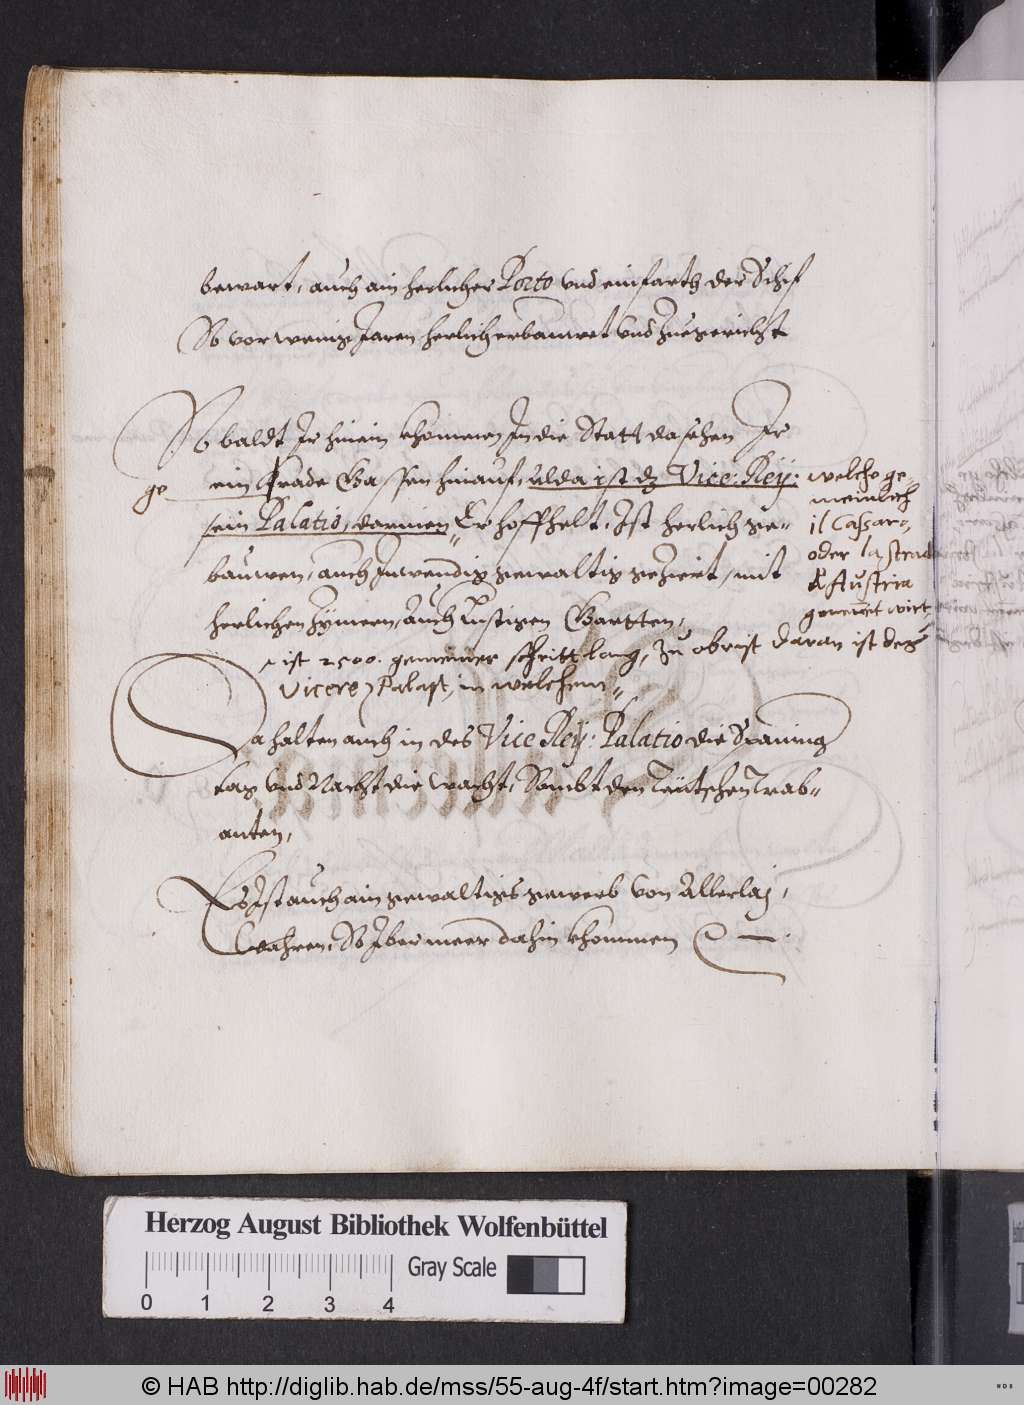 bewart, auch ain herlicher Porto und einfarth der Schif
So vor wenig Jaren herlich erbauwet und Zuegericht
So baldt Ir hinein khommen In die Statt da sehen Ir
ge
ein Grade Gassen hinauf, alda ist dz Vice: Rey:
sein Palatio, darinnen Er hoffhelt, Ist herlich ge=
bauwen, auch Inwendig gewaltig geziert, mit
herlichen Zymern, Auch Lustigen Gartten,
welche ge=
meinlich
il Cassaro,
oder la strada
d'Austria
genennet wirt
ist 2500. gemeiner schritt lang, Zu obrist daran ist des
Vicere Palast, in welchem
Da halten auch in des Vice Rey: Palatio die Spaning
tag und Nacht die wacht, Sambt den Teütschen Trab=
anten,
Es Ist auch ain gewaltigs gewerb von Allerlaj,
Wahren, So Iber meer dahin khommen
Herzog August Bibliothek Wolfenbüttel
Gray Scale
0 1 2 3 4
© HAB http://diglib.hab.de/mss/55-aug-4f/start.htm?image=00282